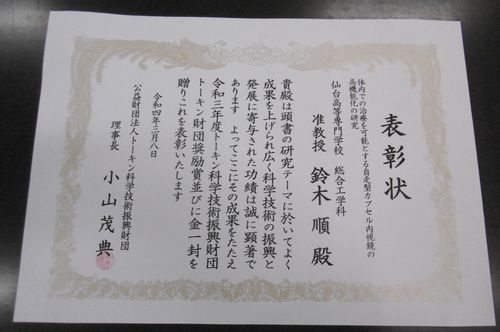 表彰状
体内での治療を可能とする自走型カプセル内視鏡の
高機能化の研究
仙台高等専門学校 総合工学科
准教授 鈴木 順 殿
貴殿は頭書の研究テーマに於いてよく
成果を上げられ広く科学技術の振興と
発展に寄与された功績は誠に顕著で
あります よってここにその成果をたたえ
令和三年度トーキン科学技術振興財団
トーキン財団奨励賞並びに金一封を
贈りこれを表彰いたします
令和四年三月八日
公益財団法人トーキン科学技術振興財団
理事長 小山茂典